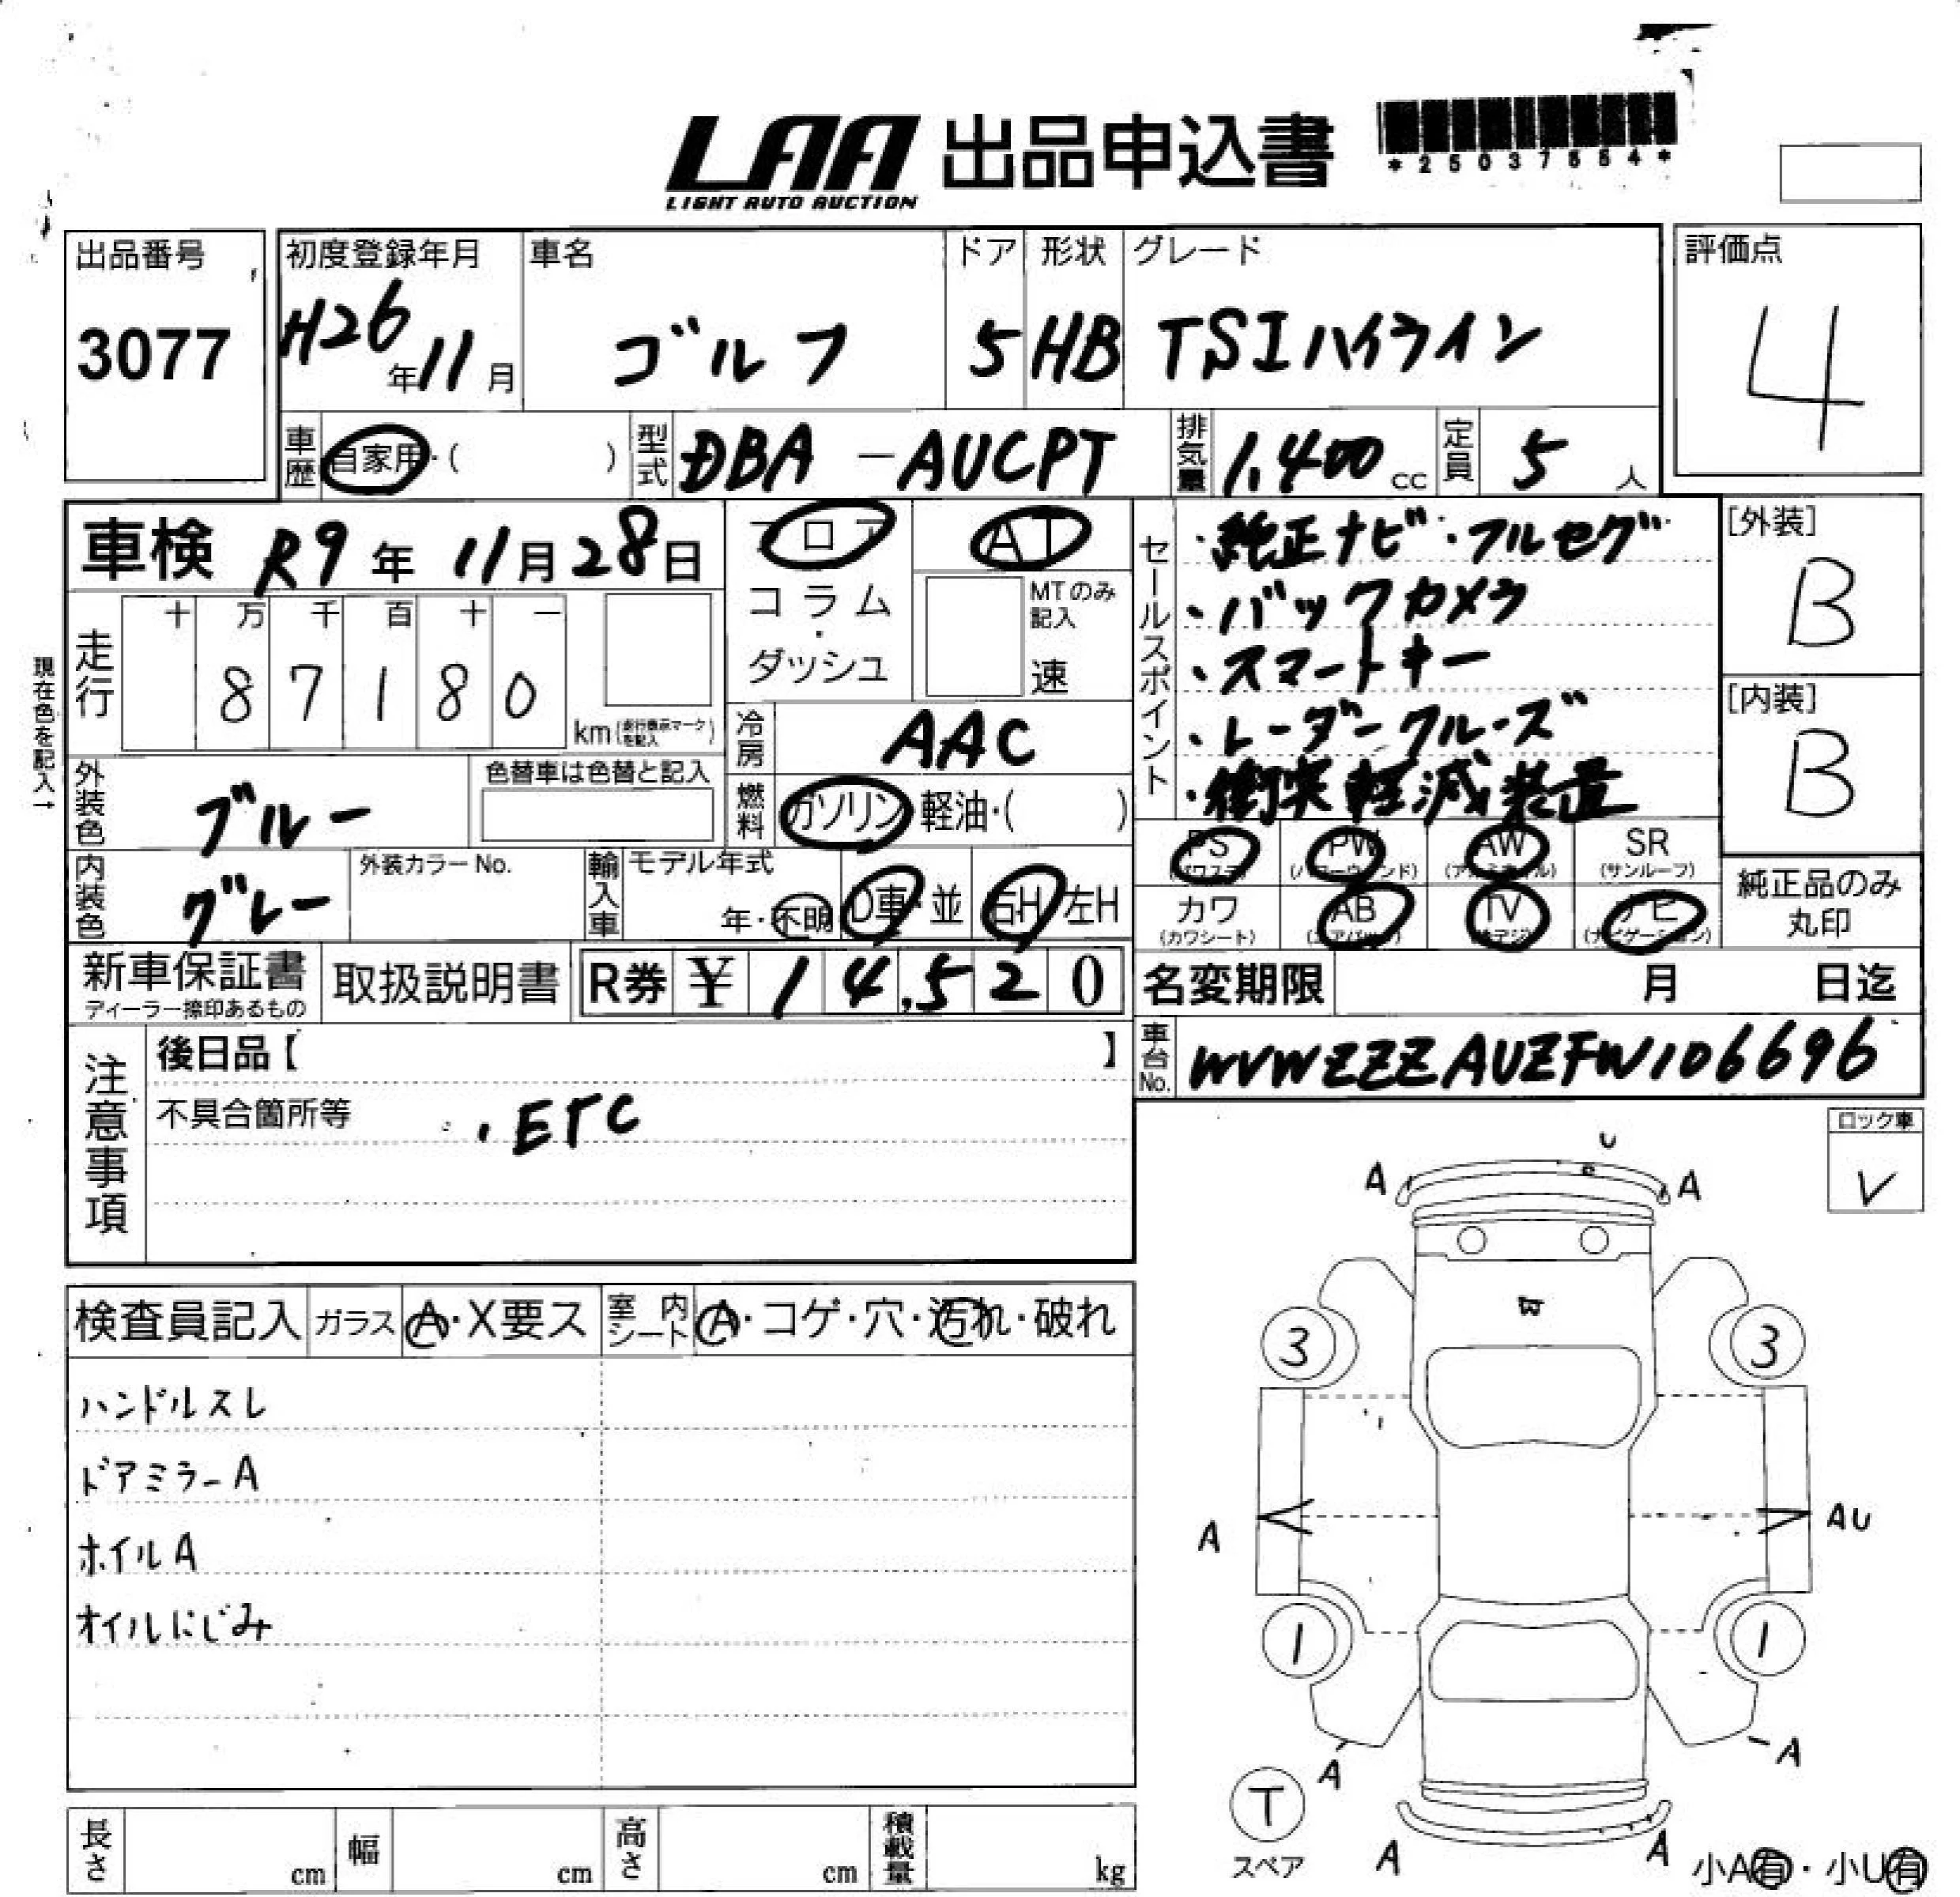 LAA 出品申込書
LIGHT AUTO AUCTION
*25037554*
出品番号
3077
初度登録年月
H26年11月
車名
ゴルフ
ドア
5
形状
HB
グレード
TSIハイライン
評価点
4
車歴
自家用・( )
型式
DBA-AUCPT
排気量
1,400cc
定員
5人
車検 R9年11月28日
フロア
コラム・ダッシュ
AT
MTのみ記入
速
走行
十 万 千 百 十 一
8 7 1 8 0
km
現在色を記入→
外装色
ブルー
色替車は色替と記入
内装色
グレー
外装カラーNo.
冷房
AAC
燃料
ガソリン 軽油・( )
輸入車
モデル年式
年・不明
D車・並
右H 左H
セールスポイント
・純正ナビ・フルセグ
・バックカメラ
・スマートキー
・レーダークルーズ
・衝突軽減装置
PS
(パワステ)
PW
(パワーウィンド)
AW
(アルミホイル)
SR
(サンルーフ)
カワ
(カワシート)
AB
(エアバック)
TV
(地デジ)
ナビ
(ナビゲーション)
[外装]
B
[内装]
B
純正品のみ
丸印
新車保証書
ディーラー捺印あるもの
取扱説明書
R券 ¥14,520
名変期限 月 日迄
車台No.
WVWZZZAUZFW106696
注意事項
後日品【 】
不具合箇所等
・ETC
ロック車
V
検査員記入
ガラス
A・X要ス
室内シート
A・コゲ・穴・汚れ・破れ
ハンドルスレ
ドアミラーA
ホイルA
オイルにじみ
U
A
A
3
3
A
AU
1
1
A
A
T
スペア
A
A
小A有・小U有
長さ
cm
幅
cm
高さ
cm
積載量
kg